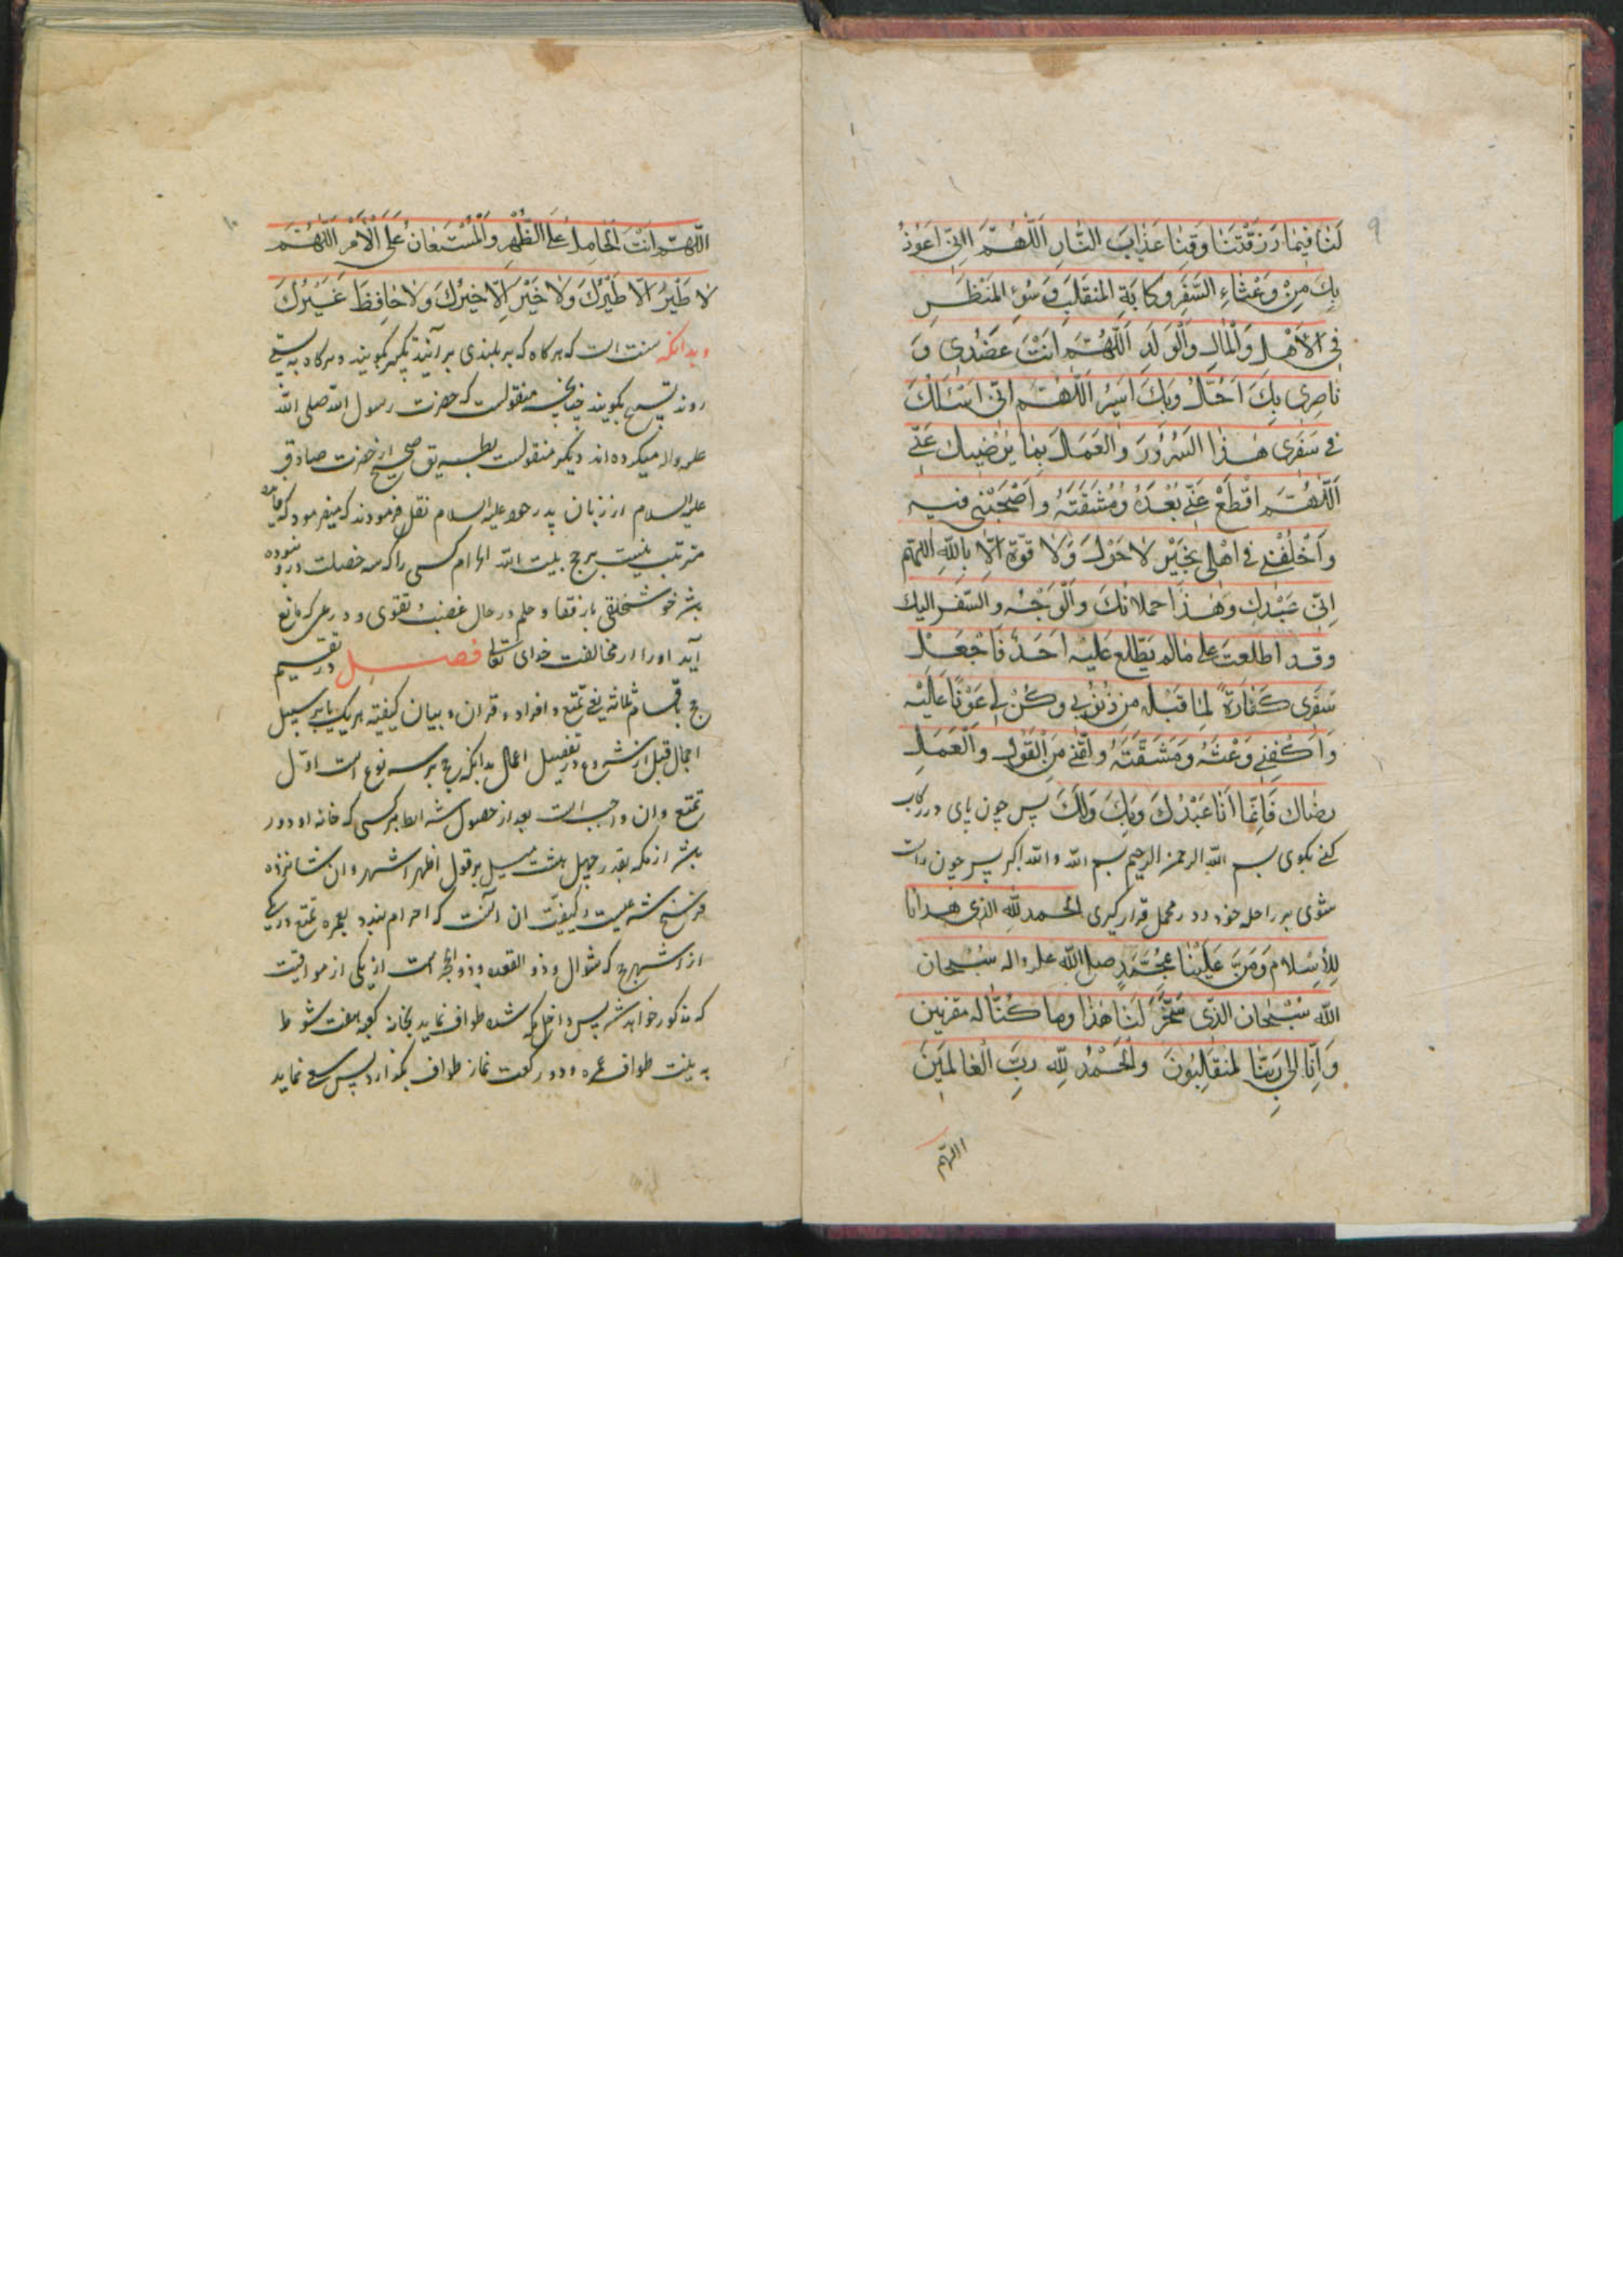 ۹
لَنا فیما رَزَقْتَنا وَقِنا عَذابَ النّارِ اَللّهُمَّ اِنّی اَعُوذُ
بِكَ مِنْ وَعْثاءِ السَّفَرِ وَكابَةِ المُنقَلَبِ وَسُوءِ المَنظَرِ
فِی الاَهْلِ وَالْمالِ وَالْوَلَدِ اَللّهُمَّ اَنْتَ عَضُدی وَ
ناصِری بِكَ اَحُلُّ وَبِكَ اَسیرُ اَللّهُمَّ اِنّی اَسْئَلُكَ
فی سَفَری هٰذا السُّرُورَ وَالعَمَلَ بِما یُرْضیكَ عَنّی
اَللّهُمَّ اقْطَعْ عَنّی بُعْدَهُ وَمَشَقَّتَهُ وَاَصْحِبْنی فیهِ
وَاَخْلُفْنی فی اَهْلی بِخَیْرٍ لاحَوْلَ وَلا قُوَّةَ اِلّا بِاللّهِ اللهم
اِنّی عَبْدُكَ وَهٰذا حملانكَ وَالْوَجْهُ وَالسَّفَرُ الیك
وقد اطلعتَ علی مالم یَطّلع عَلَیْهِ اَحَدٌ فَاجْعَلْ
سَفَری كَفّارَةً لِما قَبْلَهُ مِن ذُنُوبی وَكُنْ لی عَوْنًا عَلَیْهِ
وَاكْفِنی وَعْثَهُ وَمَشَقَّتَهُ وَلَقِّنی مِنَ الْقَوْلِ وَالْعَمَلِ
رِضاك فَاِنَّما اَنَا عَبْدُكَ وَبِكَ وَلَكَ پس چون پای در ركاب
كنی بكوی بسم الله الرحمن الرحیم بسم الله والله اكبر پس چون راست
شوی بر راحله خود و در محمل قرار كیری اَلْحَمدُ لِلّهِ الَّذی هَدانا
لِلْاِسْلامِ وَمَنَّ عَلَیْنا بِمُحَمَّدٍ صلی الله علیه واله سُبْحانَ
اللّهِ سُبْحانَ الَّذی سَخَّرَ لَنا هٰذا وما كُنّا له مقرنین
وَاِنّا اِلی رَبِّنا لَمُنقَلِبُونَ وَالْحَمْدُ لِلّهِ رَبِّ الْعالَمینَ
اللهم
۱۰
اَللّهُمَّ اَنْتَ الْحامِلُ عَلَی الظَّهْرِ وَالْمُسْتَعانُ عَلَی الْاَمْرِ اَللّهُمَّ
لا طَیْرَ اِلّا طَیْرُكَ وَلا خَیْرَ اِلّا خَیْرُكَ وَلا حافِظَ غَیْرُكَ
وبدانكه سنت است كه هر كاه كه بر بلندی بر آیند تكبیر بكویند وهر كاه به پستی
روند تسبیح بكویند چنانچه منقولست كه حضرت رسول الله صلی الله
علیه واله میكرده اند ودیكر منقولست بطریق صحیح از حضرت صادق
علیه السلام از زبان پدر خود علیه السلام نقل فرمودند كه میفرمود كه فایده
مترتب نیست بر حج بیت الله الحرام كسی را كه سه خصلت در او نبوده
باشد خوش خلقی با رفقا و حلم در حال غضب و تقوی و ورعی كه مانع
آید او را از مخالفت خدای تعالی فصل در تقسیم
حج باقسام ثلاثه یعنی تمتع و افراد و قران و بیان كیفیت هر یك بر سبیل
اجمال قبل از شروع در تفصیل اعمال بدانكه حج بر سه نوع است اول
تمتع وان واجب است بعد از حصول شرایط بر كسی كه خانه او دور
باشد از مكه بقدر چهل هشت میل بر قول اظهر اشهر وان شانزده
فرسخ شرعیست وكیفیت ان انست كه احرام ببندد بعمره تمتع در یكی
از اشهر حج كه شوال و ذو القعده و ذو الحجه است از یكی از مواقیت
كه مذكور خواهد شد پس داخل مكه شده طواف نماید بخانه كعبه هفت شوط
به نیت طواف عمره و دو ركعت نماز طواف بكذارد پس سعی نماید